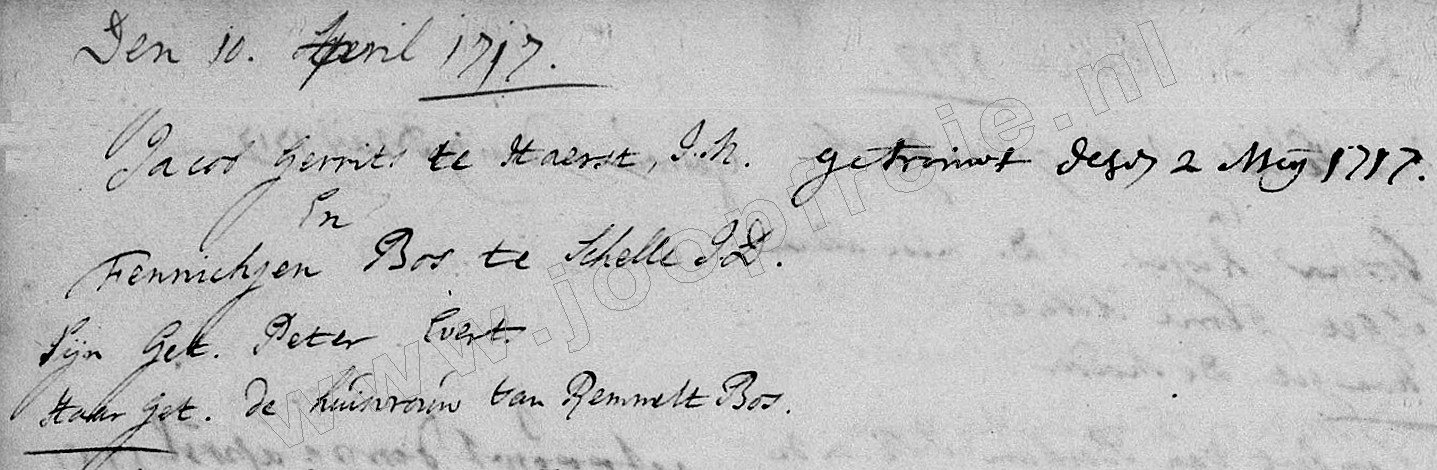 Den 10. April 1717.
Jacob Gerrits te Haerst, J.M. getrouwt desen 2 Meij 1717.
En
Fennichjen Bos te Schelle J.D.
Sijn Get. Peter Evert.
Haar Get. de huisvrouw van Remmelt Bos.
www.joopfreie.nl